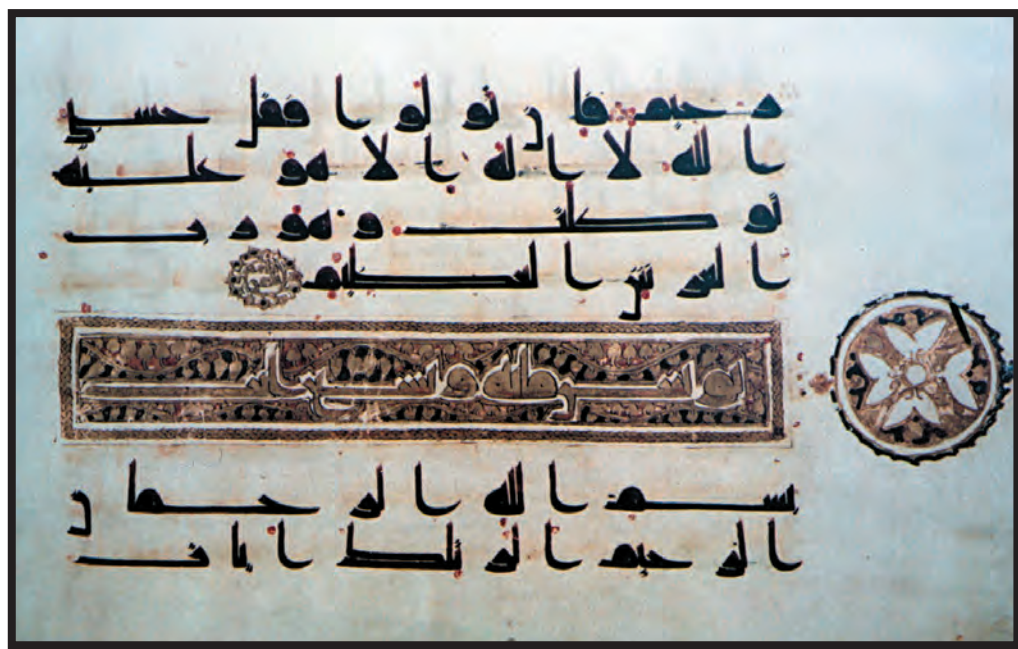 رحيم فان تولوا فقل حسبي
الله لا اله الا هو عليه
توكلت وهو رب
العرش العظيم
يونس مائه وتسع ايات
بسم الله الرحمن
الرحيم الر تلك ايات